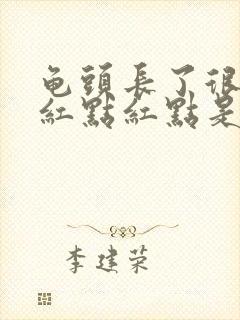 龟頭長了很
紅點紅點是
李建荣